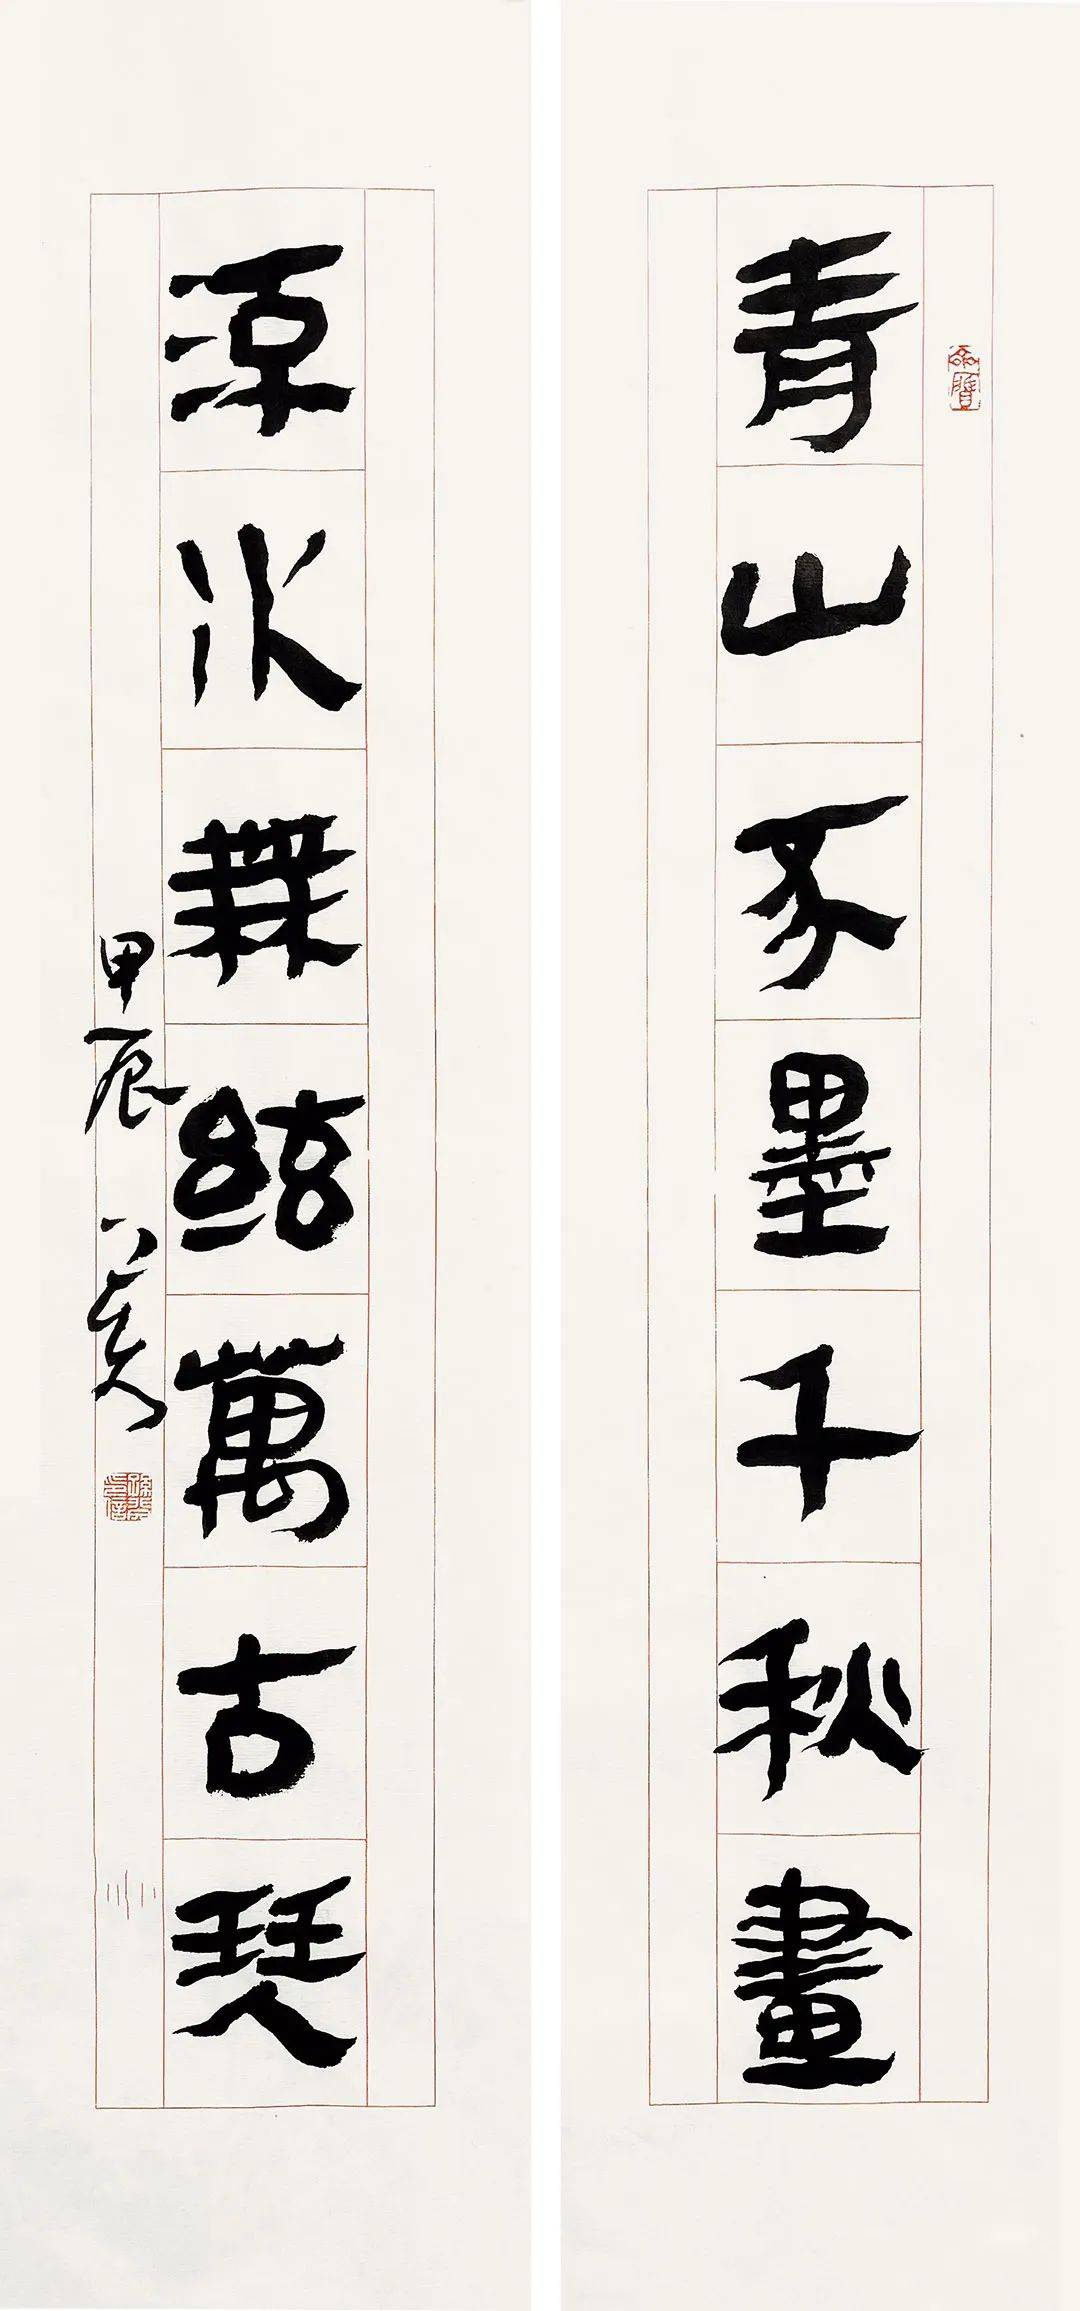 青山不墨千秋畫
水無絃萬古琴
甲辰